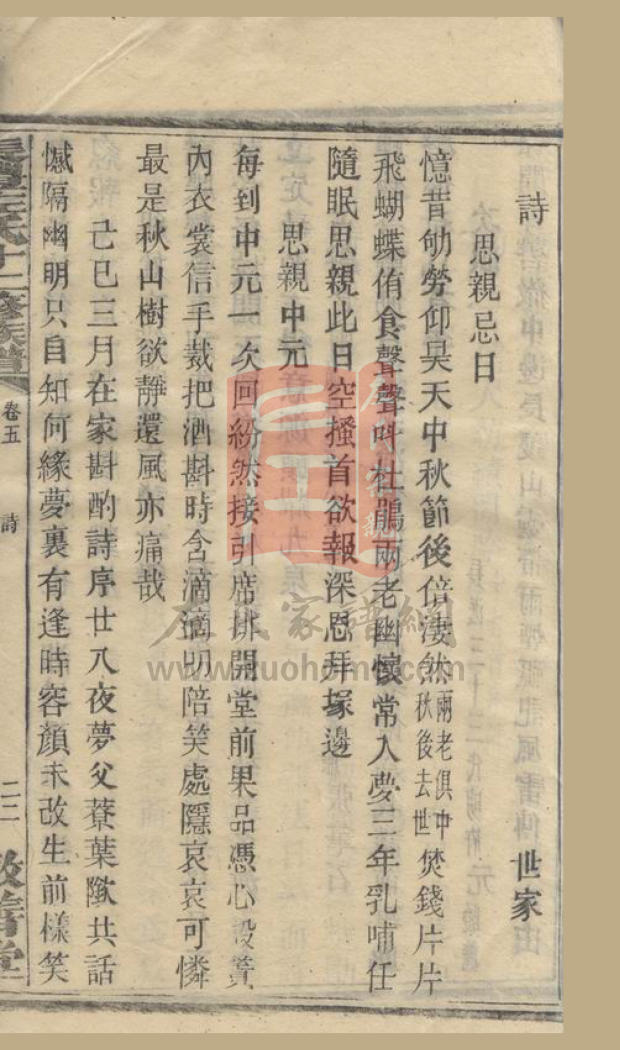 詩 世家
思親忌日
憶昔劬勞仰昊天中秋節後倍淒然兩老俱中秋後去世焚錢片片
飛蝴蝶侑食聲聲叫杜鵑兩老幽懷常入夢三年乳哺任
隨眠思親此日空搔首欲報深恩拜塚邊
思親中元
每到中元一次回紛然接引席排開堂前果品憑心設簀
內衣裳信手裁把酒斟時含滴滴明陪笑處隱哀哀可憐
最是秋山樹欲靜還風亦痛哉
己巳三月在家斟酌詩序廿八夜夢父蓂葉隂共話
憾隔幽明只自知何緣夢裏有逢時容顏未改生前樣笑
氏十二修族譜
卷五
詩
二二
敘善堂
www.zuohome.com